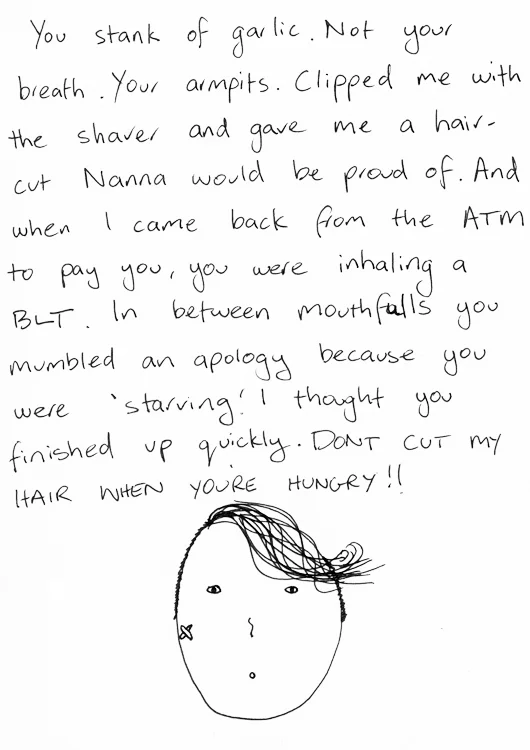 You stank of garlic. Not your
breath. Your armpits. Clipped me with
the shaver and gave me a hair-
cut Nanna would be proud of. And
when I came back from the ATM
to pay you, you were inhaling a
BLT. In between mouthfulls you
mumbled an apology because you
were 'starving'. I thought you
finished up quickly. DONT CUT MY
HAIR WHEN YOU'RE HUNGRY!!